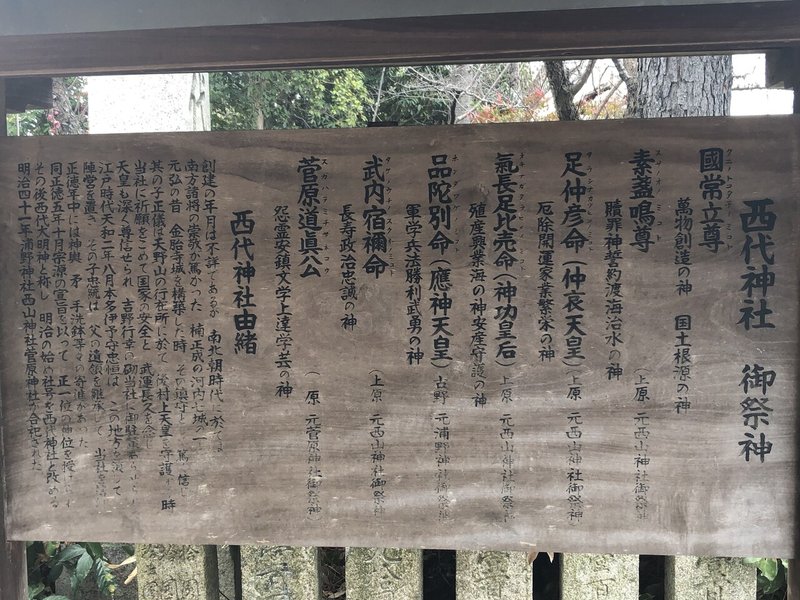 西代神社 御祭神
國常立尊
クニトコタチノミコト
萬物創造の神 国土根源の神
素盞鳴尊
スサノオノミコト
贖罪神誓約渡海治水の神
(上原 元西山神社御祭神)
足仲彦命(仲哀天皇)
厄除開運家業繁栄の神
(上原 元西山神社御祭神)
氣長足比売命(神功皇后)
殖産興業海の神安産守護の神
(上原 元西山神社御祭神)
品陀別命(應神天皇)
軍学兵法勝利武勇の神
(古野 元浦野神社御祭神)
武内宿禰命
長寿政治忠誠の神
(上原 元西山神社御祭神)
菅原道眞公
スガハラミチザネコウ
怨霊安鎮文学上達学芸の神
(原 元菅原神社御祭神)
西代神社由緒
創建の年月は不詳であるが 南北朝時代に於ては
南方諸将の崇敬が篤かった 楠正成の河内七城の一
元弘の昔 金胎寺城を構築した時 その鎮守として篤く信じ
其の子正儀は天野山の行在所に於て 後村上天皇を守護し 時
当社に祈願をこめて国家の安全と 武運長久を
天皇も深く尊信せられ 吉野行幸の砌当社に御駐輦
江戸時代天和二年八月本多伊予守忠恒は この地方を領して
陣営を置き その子忠統は 父の遺領を継承して 当社を
正徳年中には神輿 矛 手洗鉢等々の寄進があった
同正徳五年十月宗源の宣旨を以って 正一位の神位を授けられ
その後西代大明神と称し 明治の始め社号を西代神社と改める
明治四十一年浦野神社西山神社菅原神社が合祀された